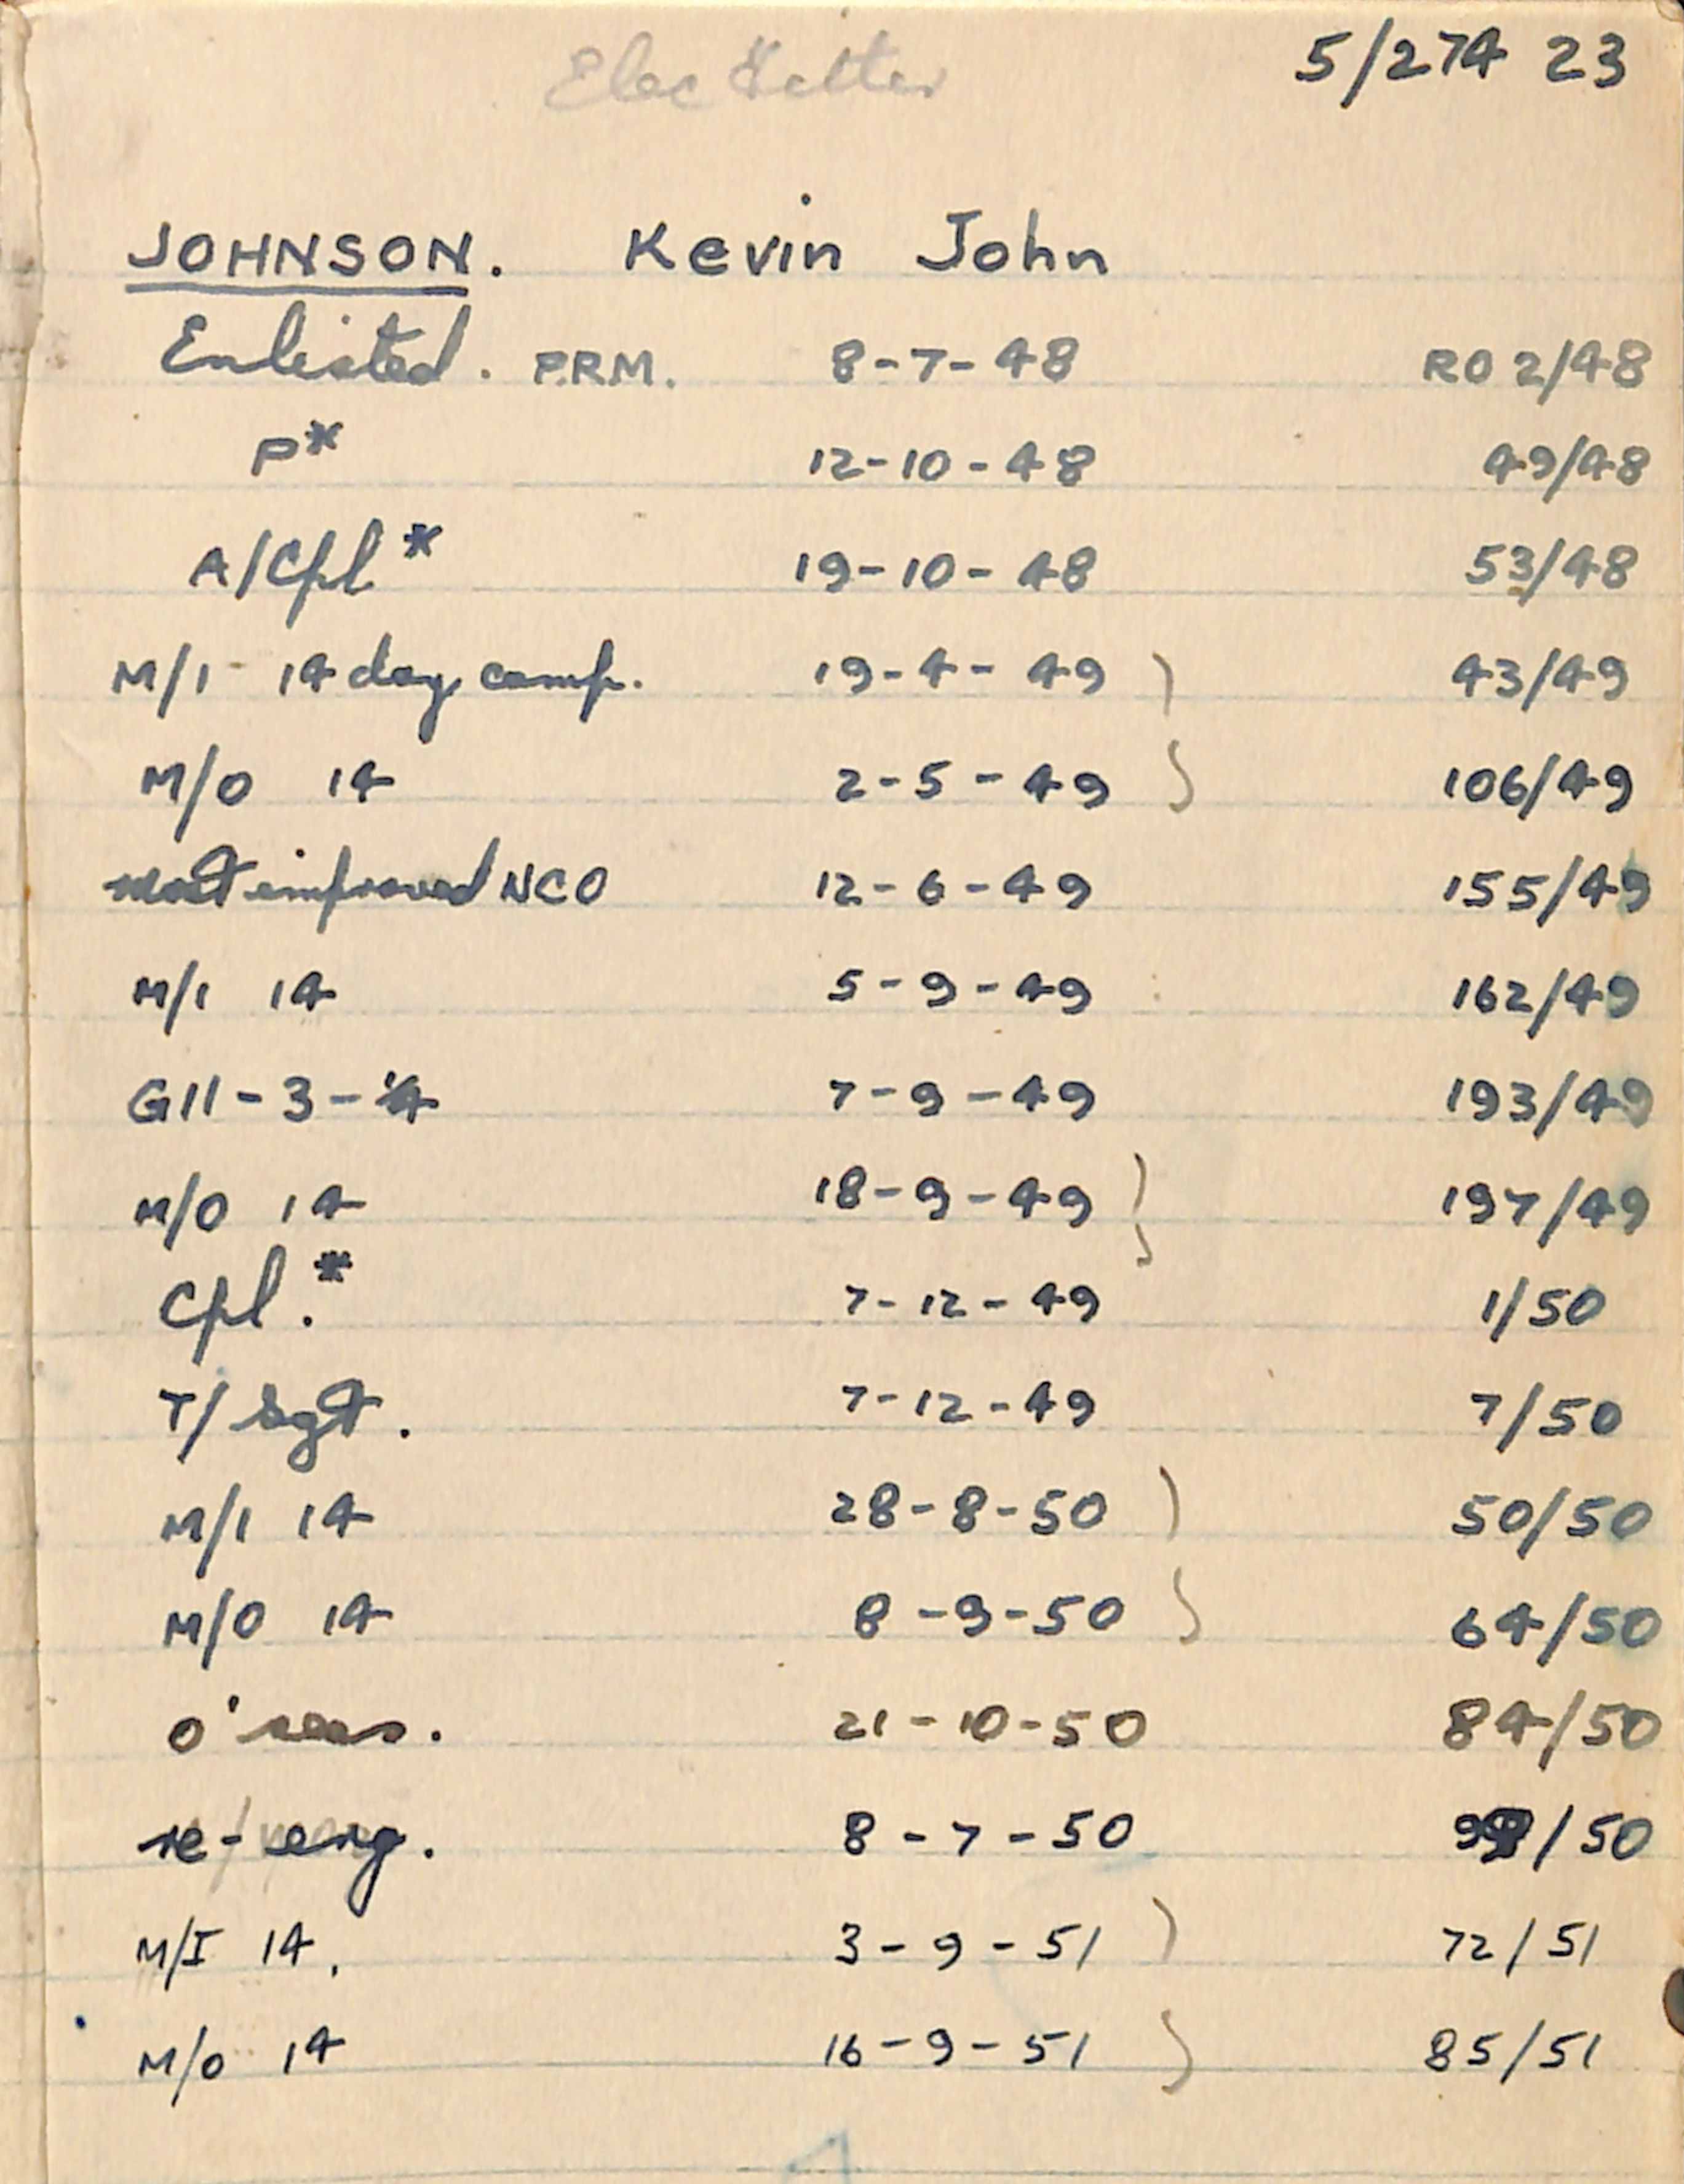 Elec Fitter 5/274 23
JOHNSON. Kevin John
Enlisted. P.R.M. 8-7-48 RO 2/48
P* 12-10-48 49/48
A/Cpl* 19-10-48 53/48
M/1 - 14 day camp. 19-4-49 ) 43/49
M/O 14 2-5-49 ) 106/49
most improved NCO 12-6-49 155/49
M/1 14 5-9-49 162/49
G11-3- 7-9-49 193/49
M/O 14 18-9-49 ) 197/49
Cpl.* 7-12-49 1/50
T/Sgt. 7-12-49 7/50
M/1 14 28-8-50 ) 50/50
M/O 14 8-9-50 ) 64/50
O'seas. 21-10-50 84/50
re-eng. 8-7-50 /50
M/I 14. 3-9-51 ) 72/51
M/O 14 16-9-51 ) 85/51